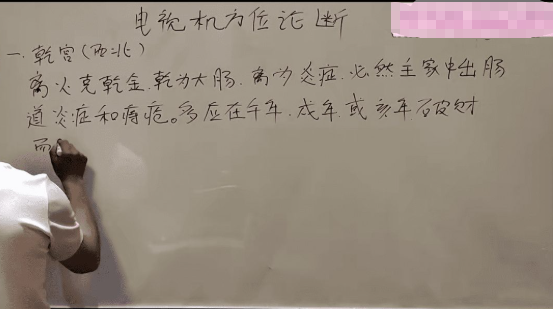 电视机方位论断
一.乾宫(西北)
离火克乾金.乾为大肠.离为炎症.必然主家中出肠
道炎症和痔疮。多应在午年.戌年.或亥年破财
而